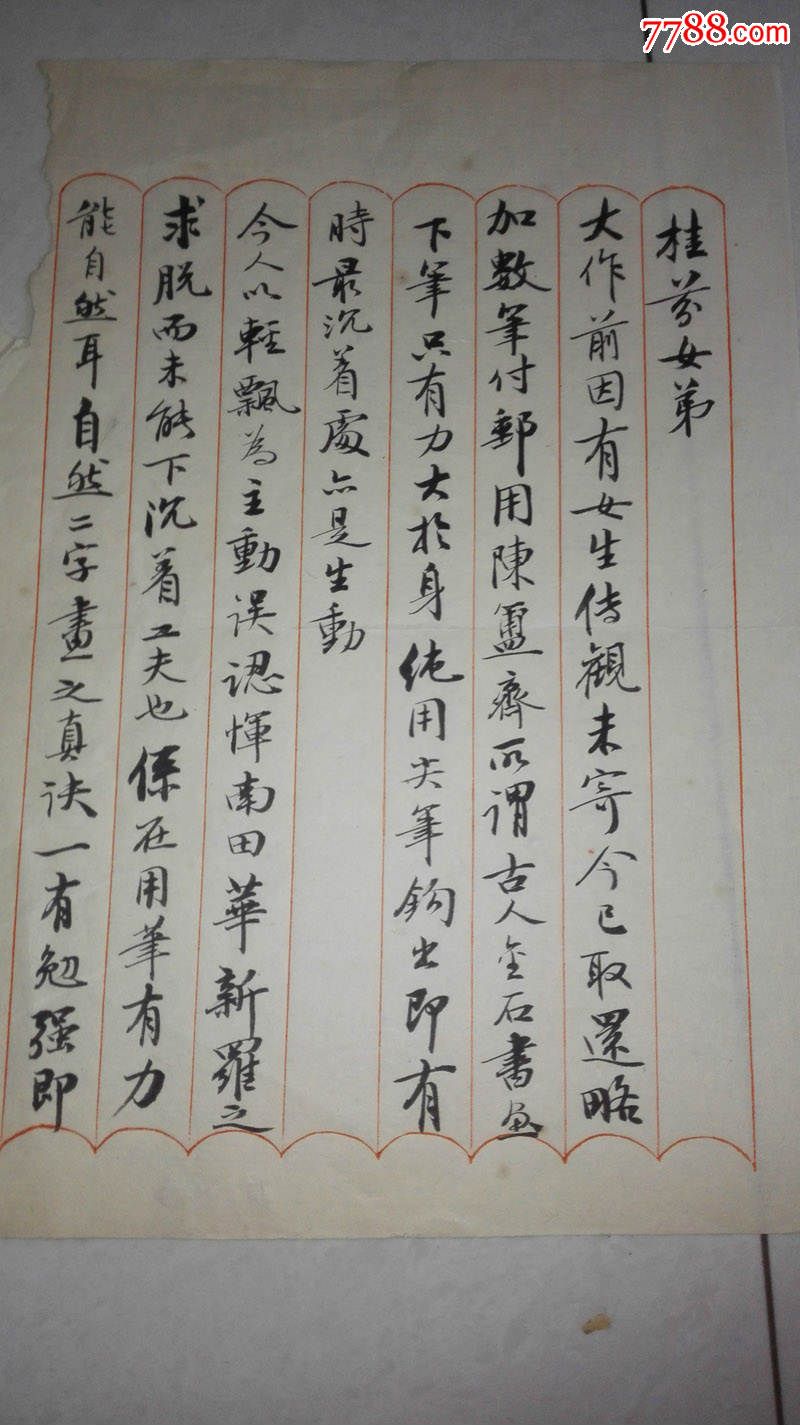 7788.com
桂芬女弟
大作前因有女生传觀未寄今已取還略
加數筆付郵用陳簠齋所謂古人金石書画
下筆只有力大於身純用尖筆鈎出即有
時最沉着處亦是生動
今人以輕飄為主動误認惲南田華新羅之
求脱而未能下沉着工夫也係在用筆有力
能自然耳自然二字畫之真诀一有勉强即